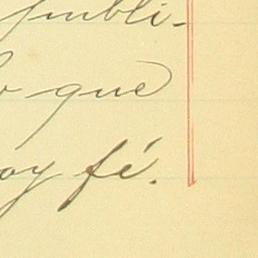 publi-
o que
oy fé.